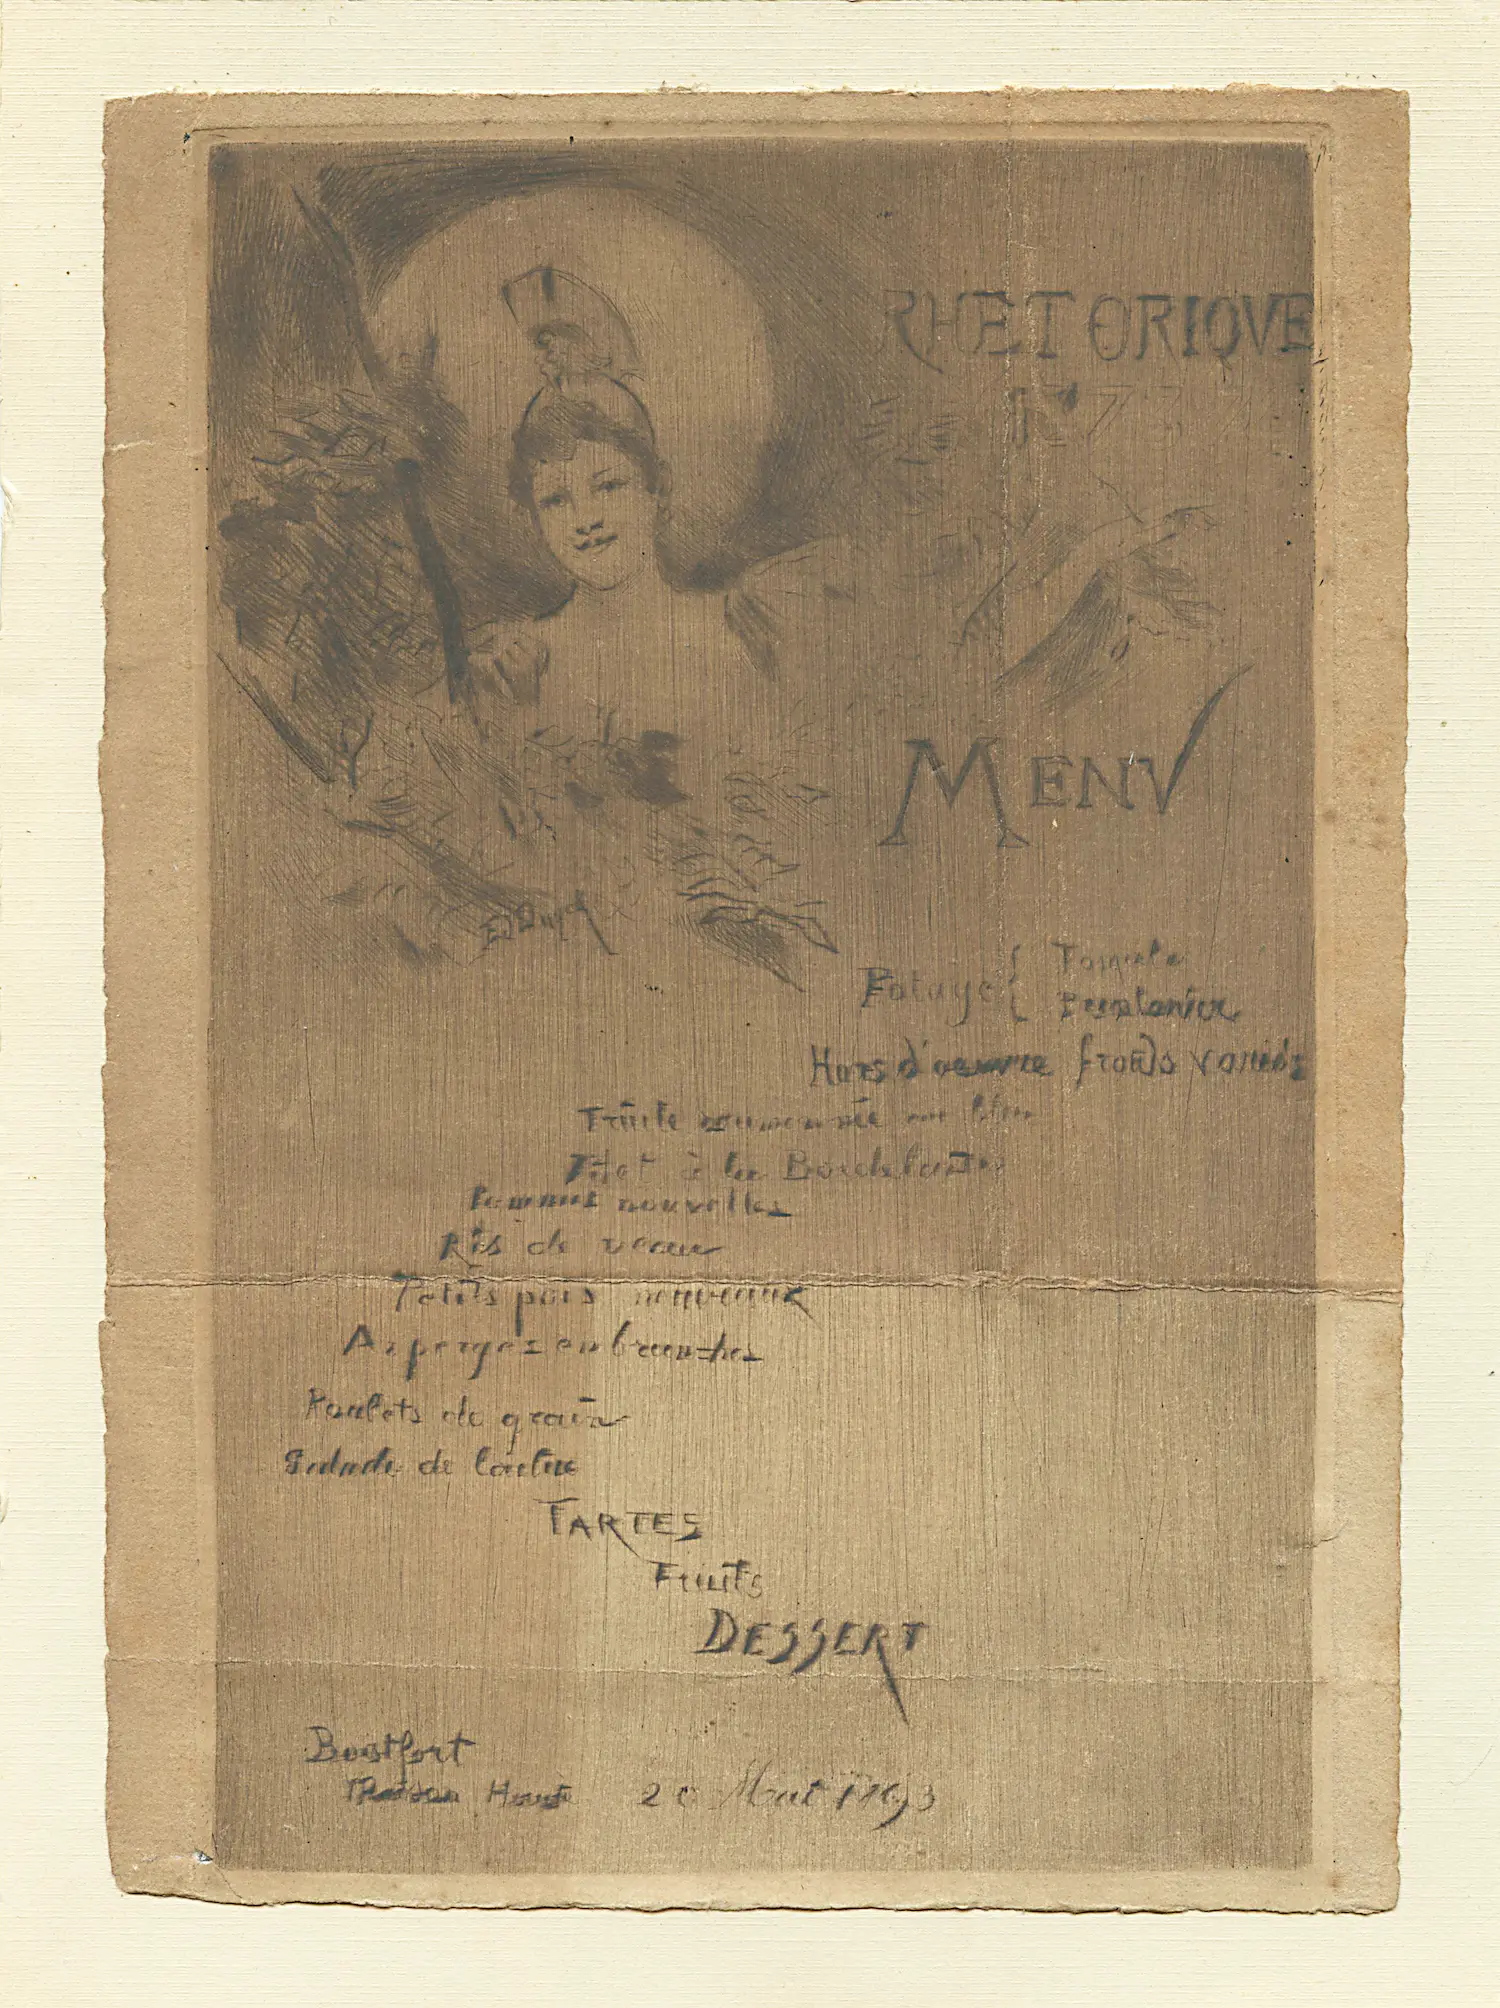 RHETORIQVE
MENV
Potage { Tomate
Printanier
Hors d'oeuvre froids variés
Truite saumonnée au bleu
Filet à la Bordelaise
Pommes nouvelles
Ris de veau
Petits pois nouveaux
Asperges en branches
Poulets de grain
Salade de laitue
TARTES
Fruits
DESSERT
Boitfort
Maison Haute 20 Mai 1893